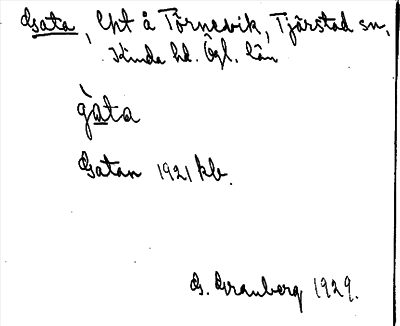 Gata, lht å Törnevik, Tjärstad sn,
Kinda hd. Ögl. län
gàta
Gatan 1921 kb.
G. Granberg 1929.